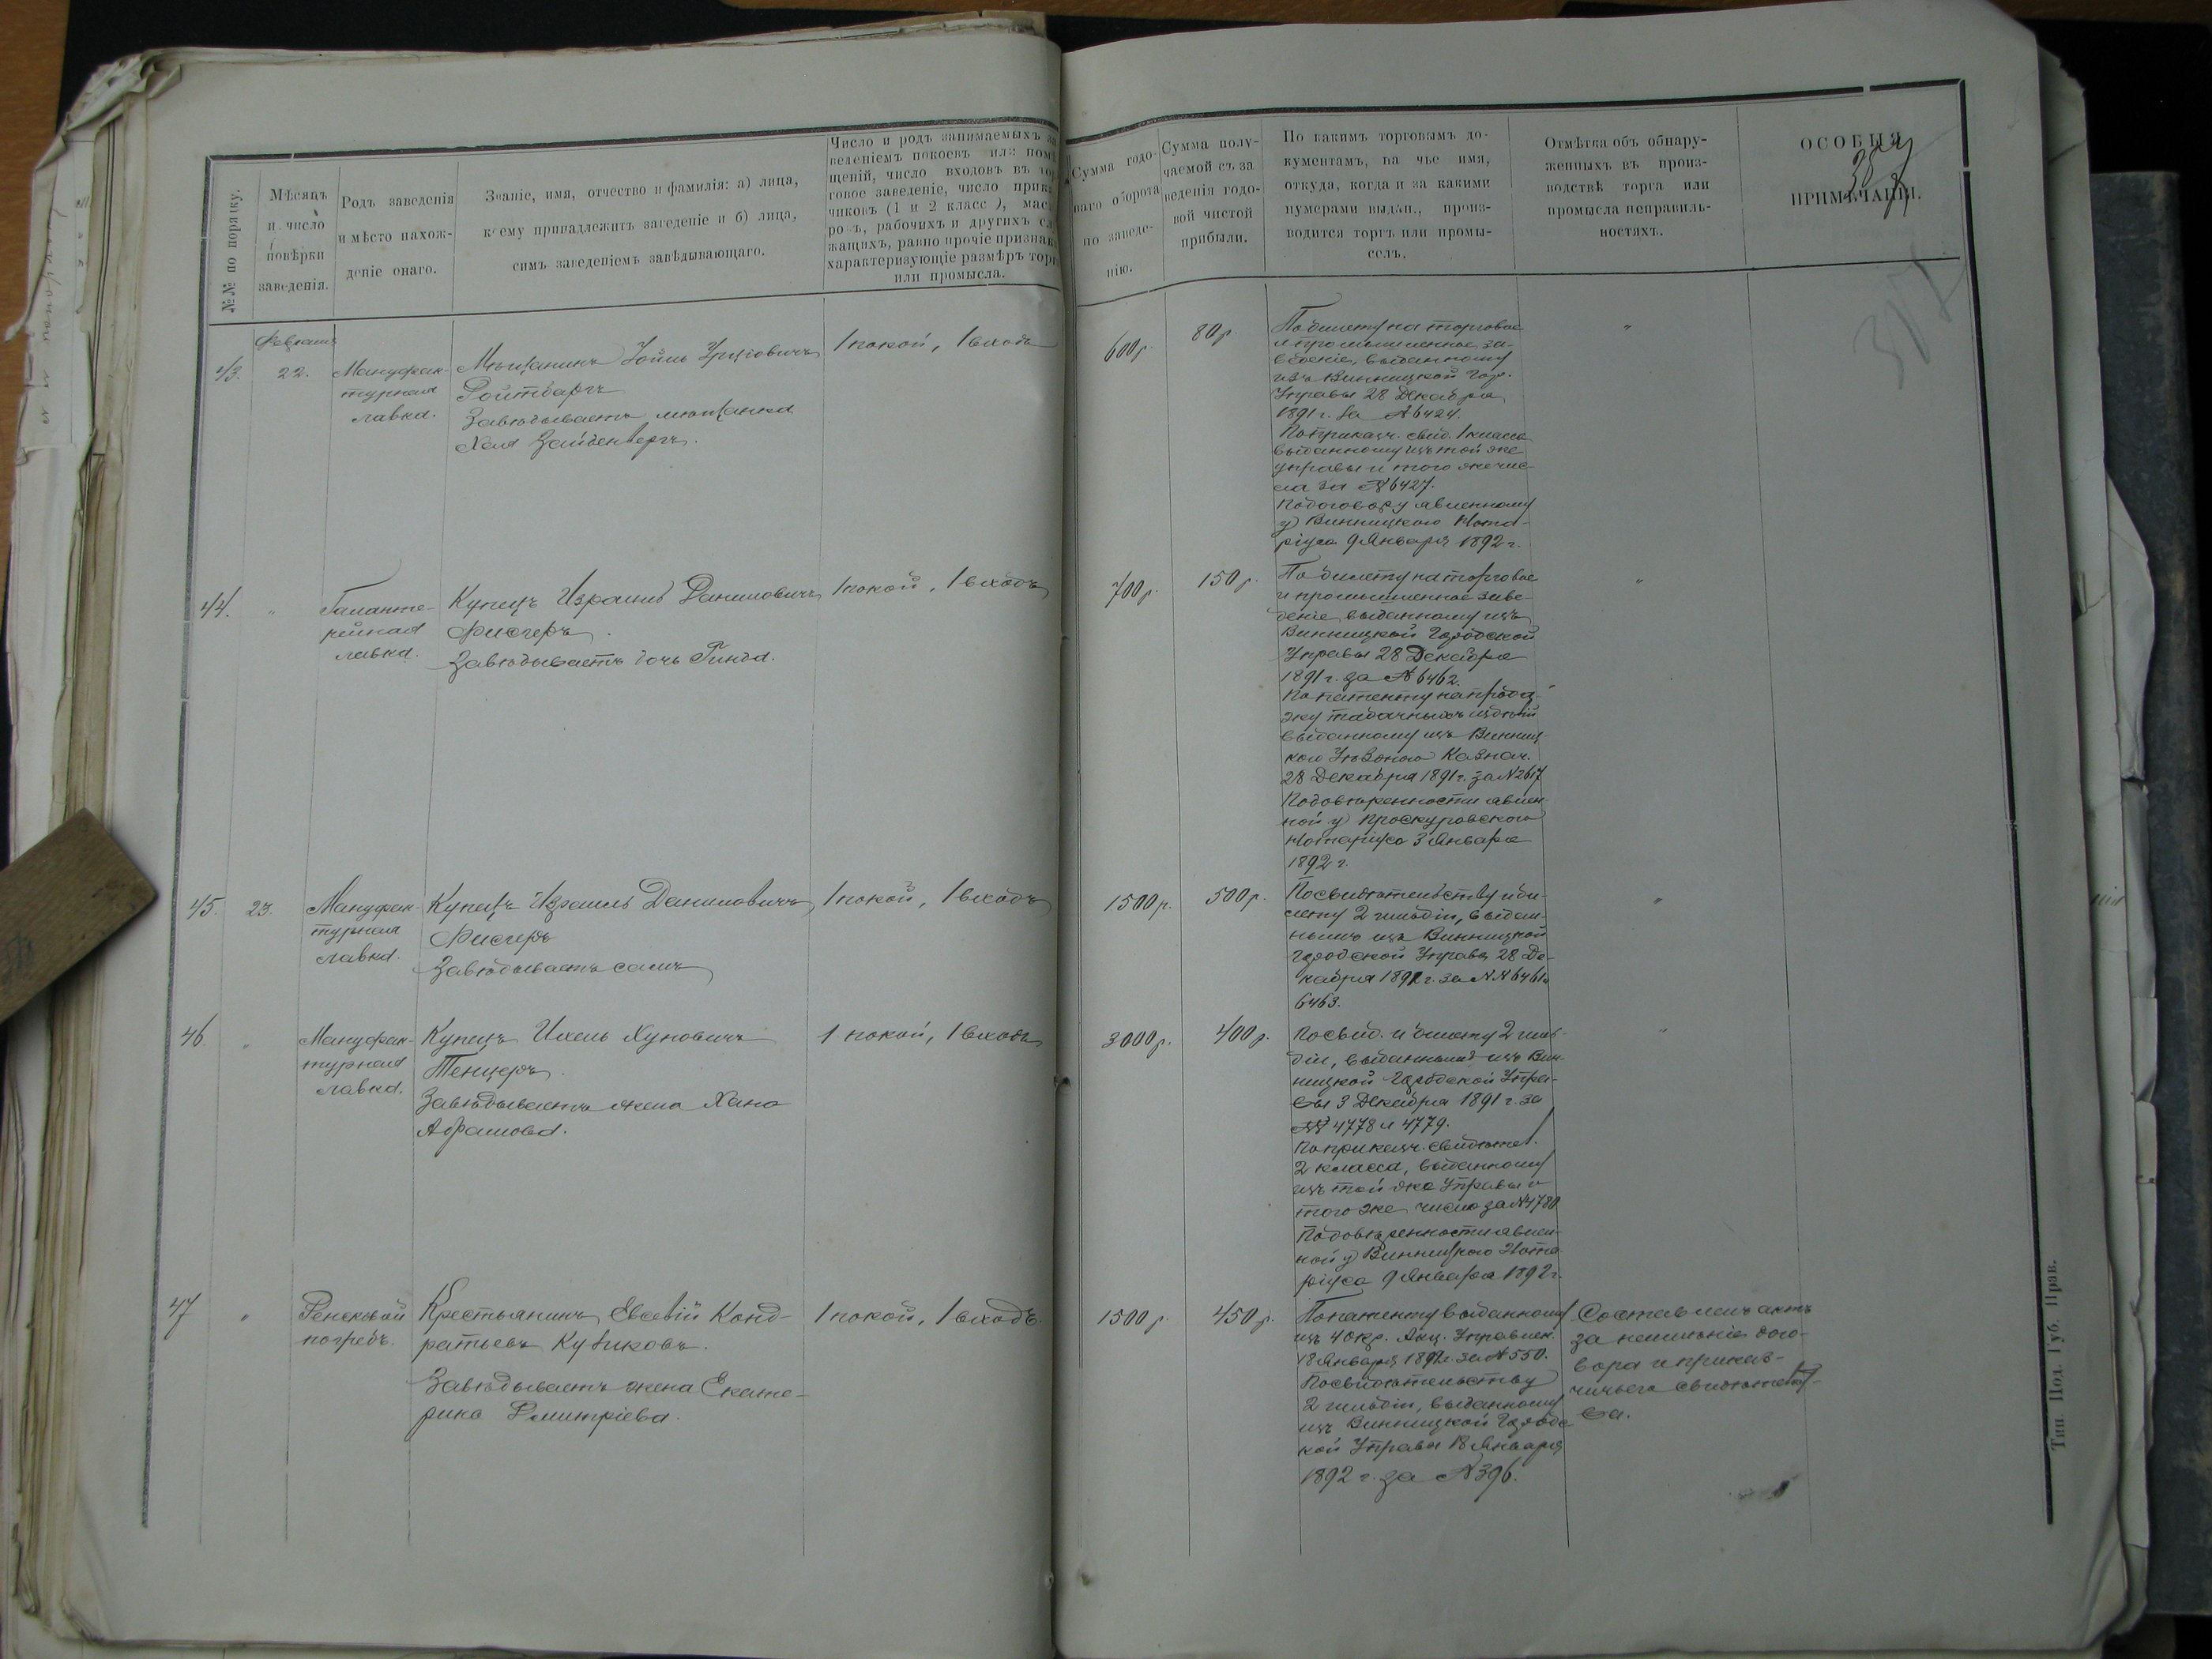 №№ по порядку.
Мѣсяцъ
и число
повѣрки
заведенія.
Родъ заведенія
и мѣсто нахож-
деніе онаго.
Званіе, имя, отчество и фамилія: а) лица,
коему принадлежитъ заведеніе и б) лица,
симъ заведеніемъ завѣдывающаго.
Число и родъ занимаемыхъ за
веденіемъ покоевъ или помѣ
щеній, число входовъ въ тор
говое заведеніе, число прика
чиковъ (1 и 2 класс ), маст
ровъ, рабочихъ и другихъ сл
жащихъ, равно прочіе признак
характеризующіе размѣръ торг
или промысла.
Сумма годо-
ваго оборота
по заведе-
нію.
Сумма полу-
чаемой съ за
ведения годо-
вой чистой
прибыли.
По какимъ торговымъ до-
кументамъ, на чье имя,
откуда, когда и за какими
нумерами выдан., произ-
водится торгъ или промы-
селъ.
Отмѣтка объ обнару-
женныхъ въ произ-
водствѣ торга или
промысла неправиль-
ностяхъ.
ОСОБЫЯ
ПРИМѢЧАНІЯ.
Февраля
43. 22. Мануфак-
турная
лавка.
Мѣщанинъ Іойль
Ройтбаргъ
Завѣдываетъ мѣщанка
Хая Зайденбергъ.
1 покой, 1 входъ
600 р.
80 р.
По билету на торговое
и промышленное за-
веденіе, выданному
изъ Винницкой Гор.
Управы 28 Декабря
1891 г. за № 6424.
По приказч. свид. 1 класса
выданному изъ той же
управы и того же чис-
ла за № 6427.
По договору явленному
у Винницкаго Нота-
ріуса 9 Января 1892 г.
"
44. " Галанте-
рейная
лавка.
Купецъ Израиль Даниловичъ
Фишеръ.
Завѣдываетъ дочь Гинда.
1 покой, 1 входъ
700 р.
150 р.
По билету на торговое
и промышленное заве-
деніе выданному изъ
Винницкой Городской
Управы 28 Декабря
1891 г. за № 6462.
По патенту на прода-
жу табачныхъ издѣлій
выданному изъ Винниц-
каго Уѣзднаго Казнач.
28 Декабря 1891 г. за № 2617
По довѣренности явлен-
ной у Проскуровскаго
Нотаріуса 3 Января
1892 г.
"
45. 23. Мануфак-
турная
лавка.
Купецъ Израиль Даниловичъ
Фишеръ
Завѣдываетъ самъ
1 покой, 1 входъ
1500 р.
500 р.
По свидѣтельству и би-
лету 2 гильдіи, выдан-
нымъ изъ Винницкой
Городской Управы 28 Де-
кабря 1891 г. за №№ 6461 и
6463.
"
46. " Мануфак-
турная
лавка.
Купецъ Ихель Хуновичъ
Тенцеръ.
Завѣдываетъ жена Хана
Абрамова.
1 покой, 1 входъ
3000 р.
400 р.
По свид. и билету 2 гиль-
діи, выданнымъ изъ Вин-
ницкой Городской Упра-
вы 3 Декабря 1891 г. за
№№ 4778 и 4779.
По приказч. свидѣтел.
2 класса, выданному
изъ той же Управы и
того же числа за № 4780
По довѣренности явлен-
ной у Винницкаго Нота-
ріуса 9 Января 1892 г.
"
47 " Ренсковый
погребъ.
Крестьянинъ Евсевій Конд-
ратьевъ Куликовъ.
Завѣдываетъ жена Екате-
рина Дмитріева.
1 покой, 1 входъ.
1500 р.
450 р.
По патенту выданному
изъ 4 окр. Акц. Управлен.
18 Января 1892 г. за № 550.
По свидѣтельству
2 гильдіи, выданному
изъ Винницкой Городс
кой Управы 18 Января
1892 г. за № 396.
Составленъ актъ
за неимѣніе дого-
вора и приказ-
чичьего свидѣтельст-
ва.
Тип. Под. Губ. Прав.